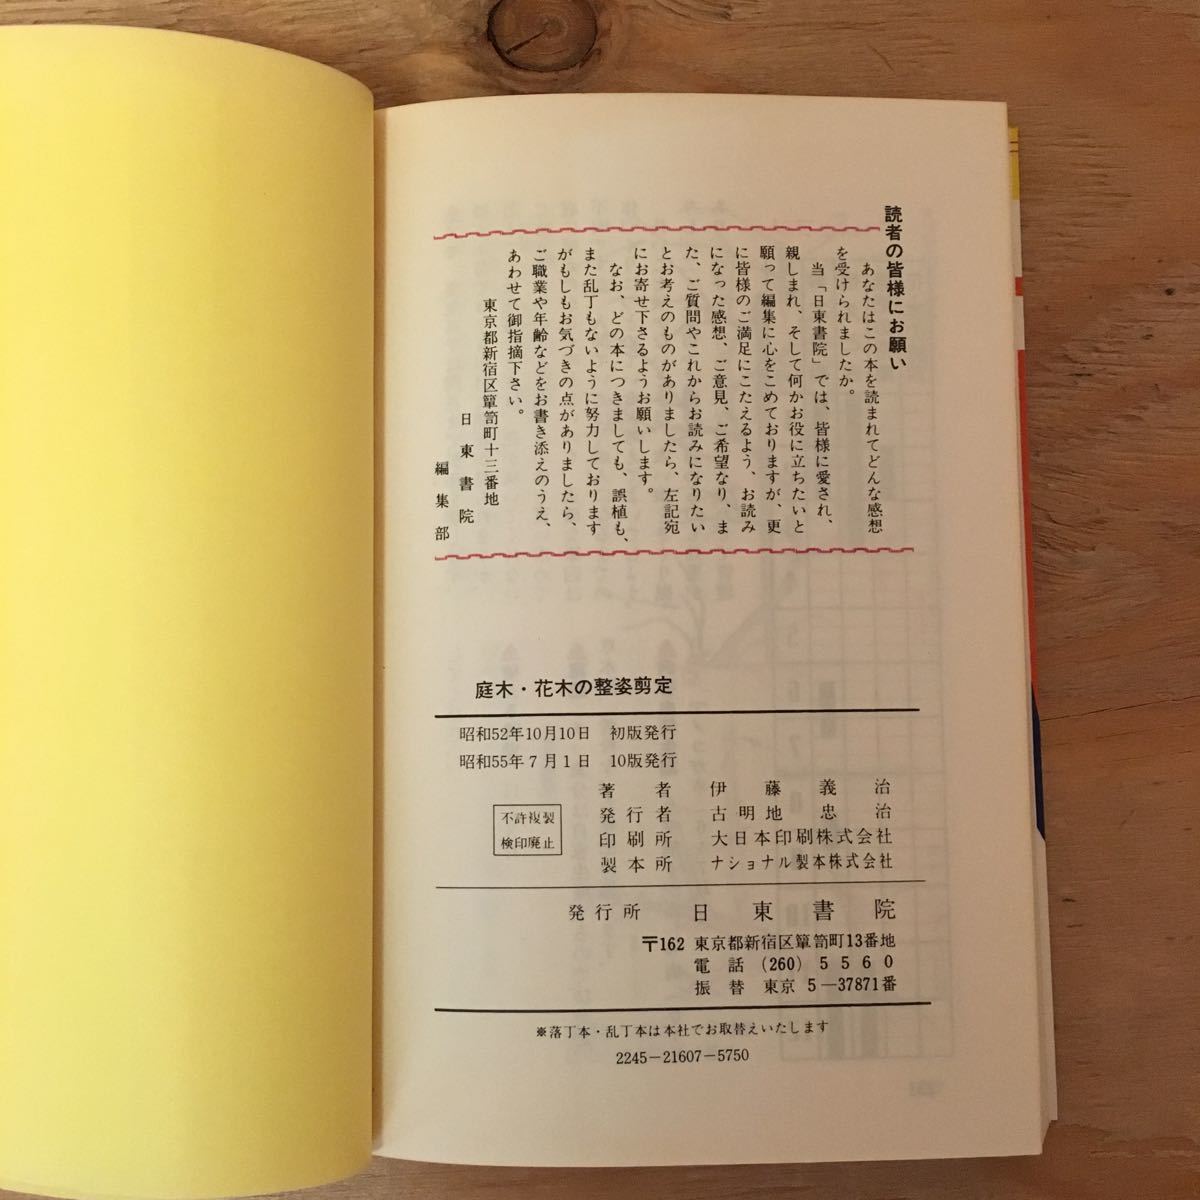 読者の皆様にお願い
あなたはこの本を読まれてどんな感想
を受けられましたか。
当「日東書院」では、皆様に愛され、
親しまれ、そして何かお役に立ちたいと
願って編集に心をこめておりますが、更
に皆様のご満足にこたえるよう、お読み
になった感想、ご意見、ご希望なり、ま
た、ご質問やこれからお読みになりたい
とお考えのものがありましたら、左記宛
にお寄せ下さるようお願いします。
なお、どの本につきましても、誤植も、
また乱丁もないように努力しております
がもしもお気づきの点がありましたら、
ご職業や年齢などをお書き添えのうえ、
あわせて御指摘下さい。
東京都新宿区簞笥町十三番地
日東書院
編集部
庭木・花木の整姿剪定
昭和52年10月10日 初版発行
昭和55年7月1日 10版発行
不許複製
検印廃止
著者 伊藤義治
発行者 古明地忠治
印刷所 大日本印刷株式会社
製本所 ナショナル製本株式会社
発行所 日東書院
〒162 東京都新宿区簞笥町13番地
電話 (260) 5560
振替 東京 5-37871番
※落丁本・乱丁本は本社でお取替えいたします
2245-21607-5750